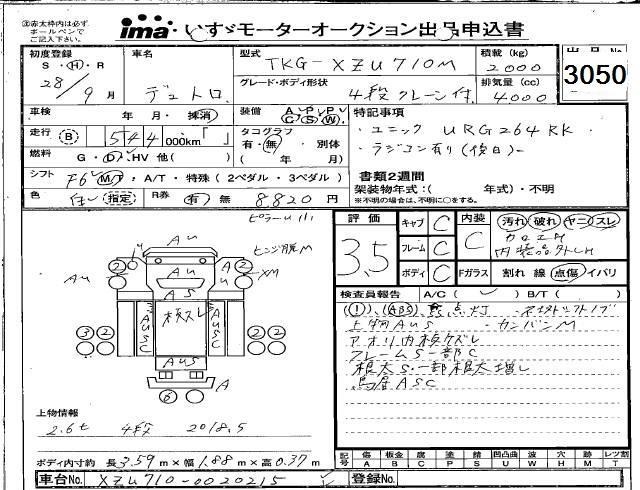 ※赤太枠内は必ず
ボールペンで
ご記入下さい。
ima いすゞモーターオークション出品申込書
初度登録 S・H・R 28/9月
車名 デュトロ
型式 TKG-XZU710M
積載(kg) 2000
グレード・ボディ形状 4段クレーン付
排気量(cc) 4000
出品No 3050
車検 年 月・抹消
装備 A/C P/S P/W
走行 B 544 000km「 」
タコグラフ 有・無・別体 ( 年 月)
燃料 G・D・HV 他( )
シフト F6 M/T・A/T・特殊(2ペダル・3ペダル)
色 指定
R券 有 無 8820円
特記事項
・ユニック URG264RK
・ラジコン有り(後日)
書類2週間
架装物年式:( 年式)・不明
※不明の場合は、不明に○をする。
評価 3.5
キャブ C
フレーム C
ボディ C
内装 C
汚れ 破れ ヤニ スレ
Fガラス 割れ 線 点傷 イバリ
検査員報告 A/C( ) B/T( )
(!)、(ABS)
上物AUS ・カンバンM
アオリ内板クズレ
フレームS一部C
根太S・一部根太増し
馬居ASC
ピラーU
AU
A
A
AU
AU
XM
AS
板スレ
AUSC
AUSC
AUS
A
2
2
2
2
3
2
2
2
6
上物情報
2.6t 4段 2018.5
ボディ内寸約 長3.59m×幅1.88m×高0.37m
記号 傷A 板金B 腐C 塗P 錆S 凹凸曲U 波W 穴H 跡M レツ割T
車台No. XZU710-0020215
登録No.